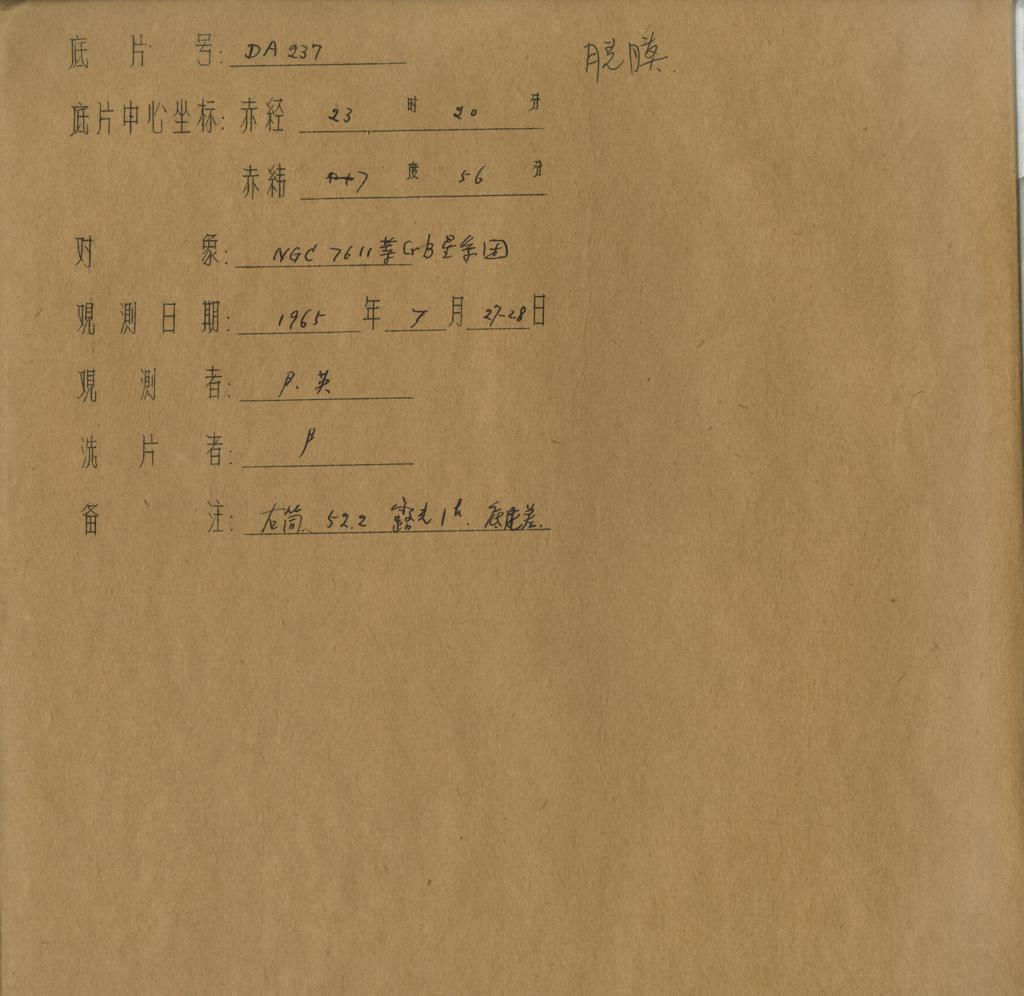 底片号: DA 237
脱膜.
底片中心坐标: 赤经 23 时 20 分
赤纬 +7 度 56 分
对象: NGC 7611 星系团
观测日期: 1965 年 7 月 27-28 日
观测者: P. 英
洗片者: P
备注: 右筒. 52.2 露光 1h. 底片差.